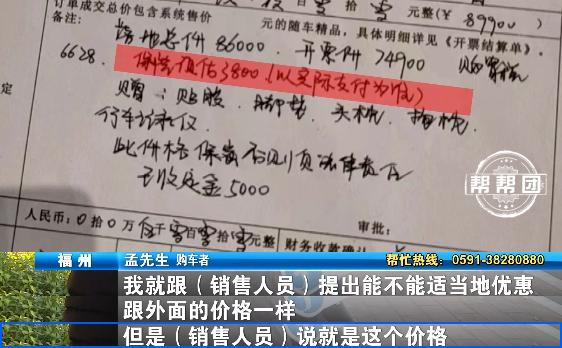 元整(¥ 89900
订单成交总价包含系统售价 元的随车精品,具体明细详见《开票结算单》。
落地总价86000 开票价74900 购置税
6628. 保险预估3800(以实际支付为准)
定
赠:贴膜、脚垫、头枕、抱枕
行车记录仪
此价格保密否则负法律责任
已收定金5000
帮帮团
人民币:0拾0万 元整 审批:
财务收款确认
福州 孟先生 购车者 帮忙热线:0591-38280880
我就跟(销售人员)提出能不能适当地优惠
跟外面的价格一样
但是(销售人员)说就是这个价格